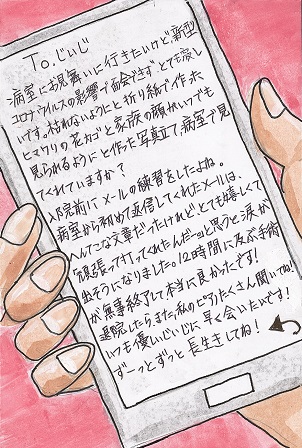 To.じぃじ
病室にお見舞いに行きたいけど、新型
コロナウイルスの影響で面会できずとても寂し
いです。枯れないようにと折り紙で作った
ヒマワリの花カゴと家族の顔がいつでも
見られるようにと作った写真立て、病室で見
てくれていますか？
入院前にメールの練習をしたよね。
病室から初めて返信してくれたメールは、
へんてこな文章だったけれど、とても嬉しくて
「頑張って打ってくれたんだ…」と思うと涙が
出そうになりました。12時間に及ぶ手術
が無事終了して本当に良かったです！
退院したら、また、私のピアノたくさん聞いてね！
いつも優しいじぃじに早く会いたいです！
ずーっとずっと長生きしてね！